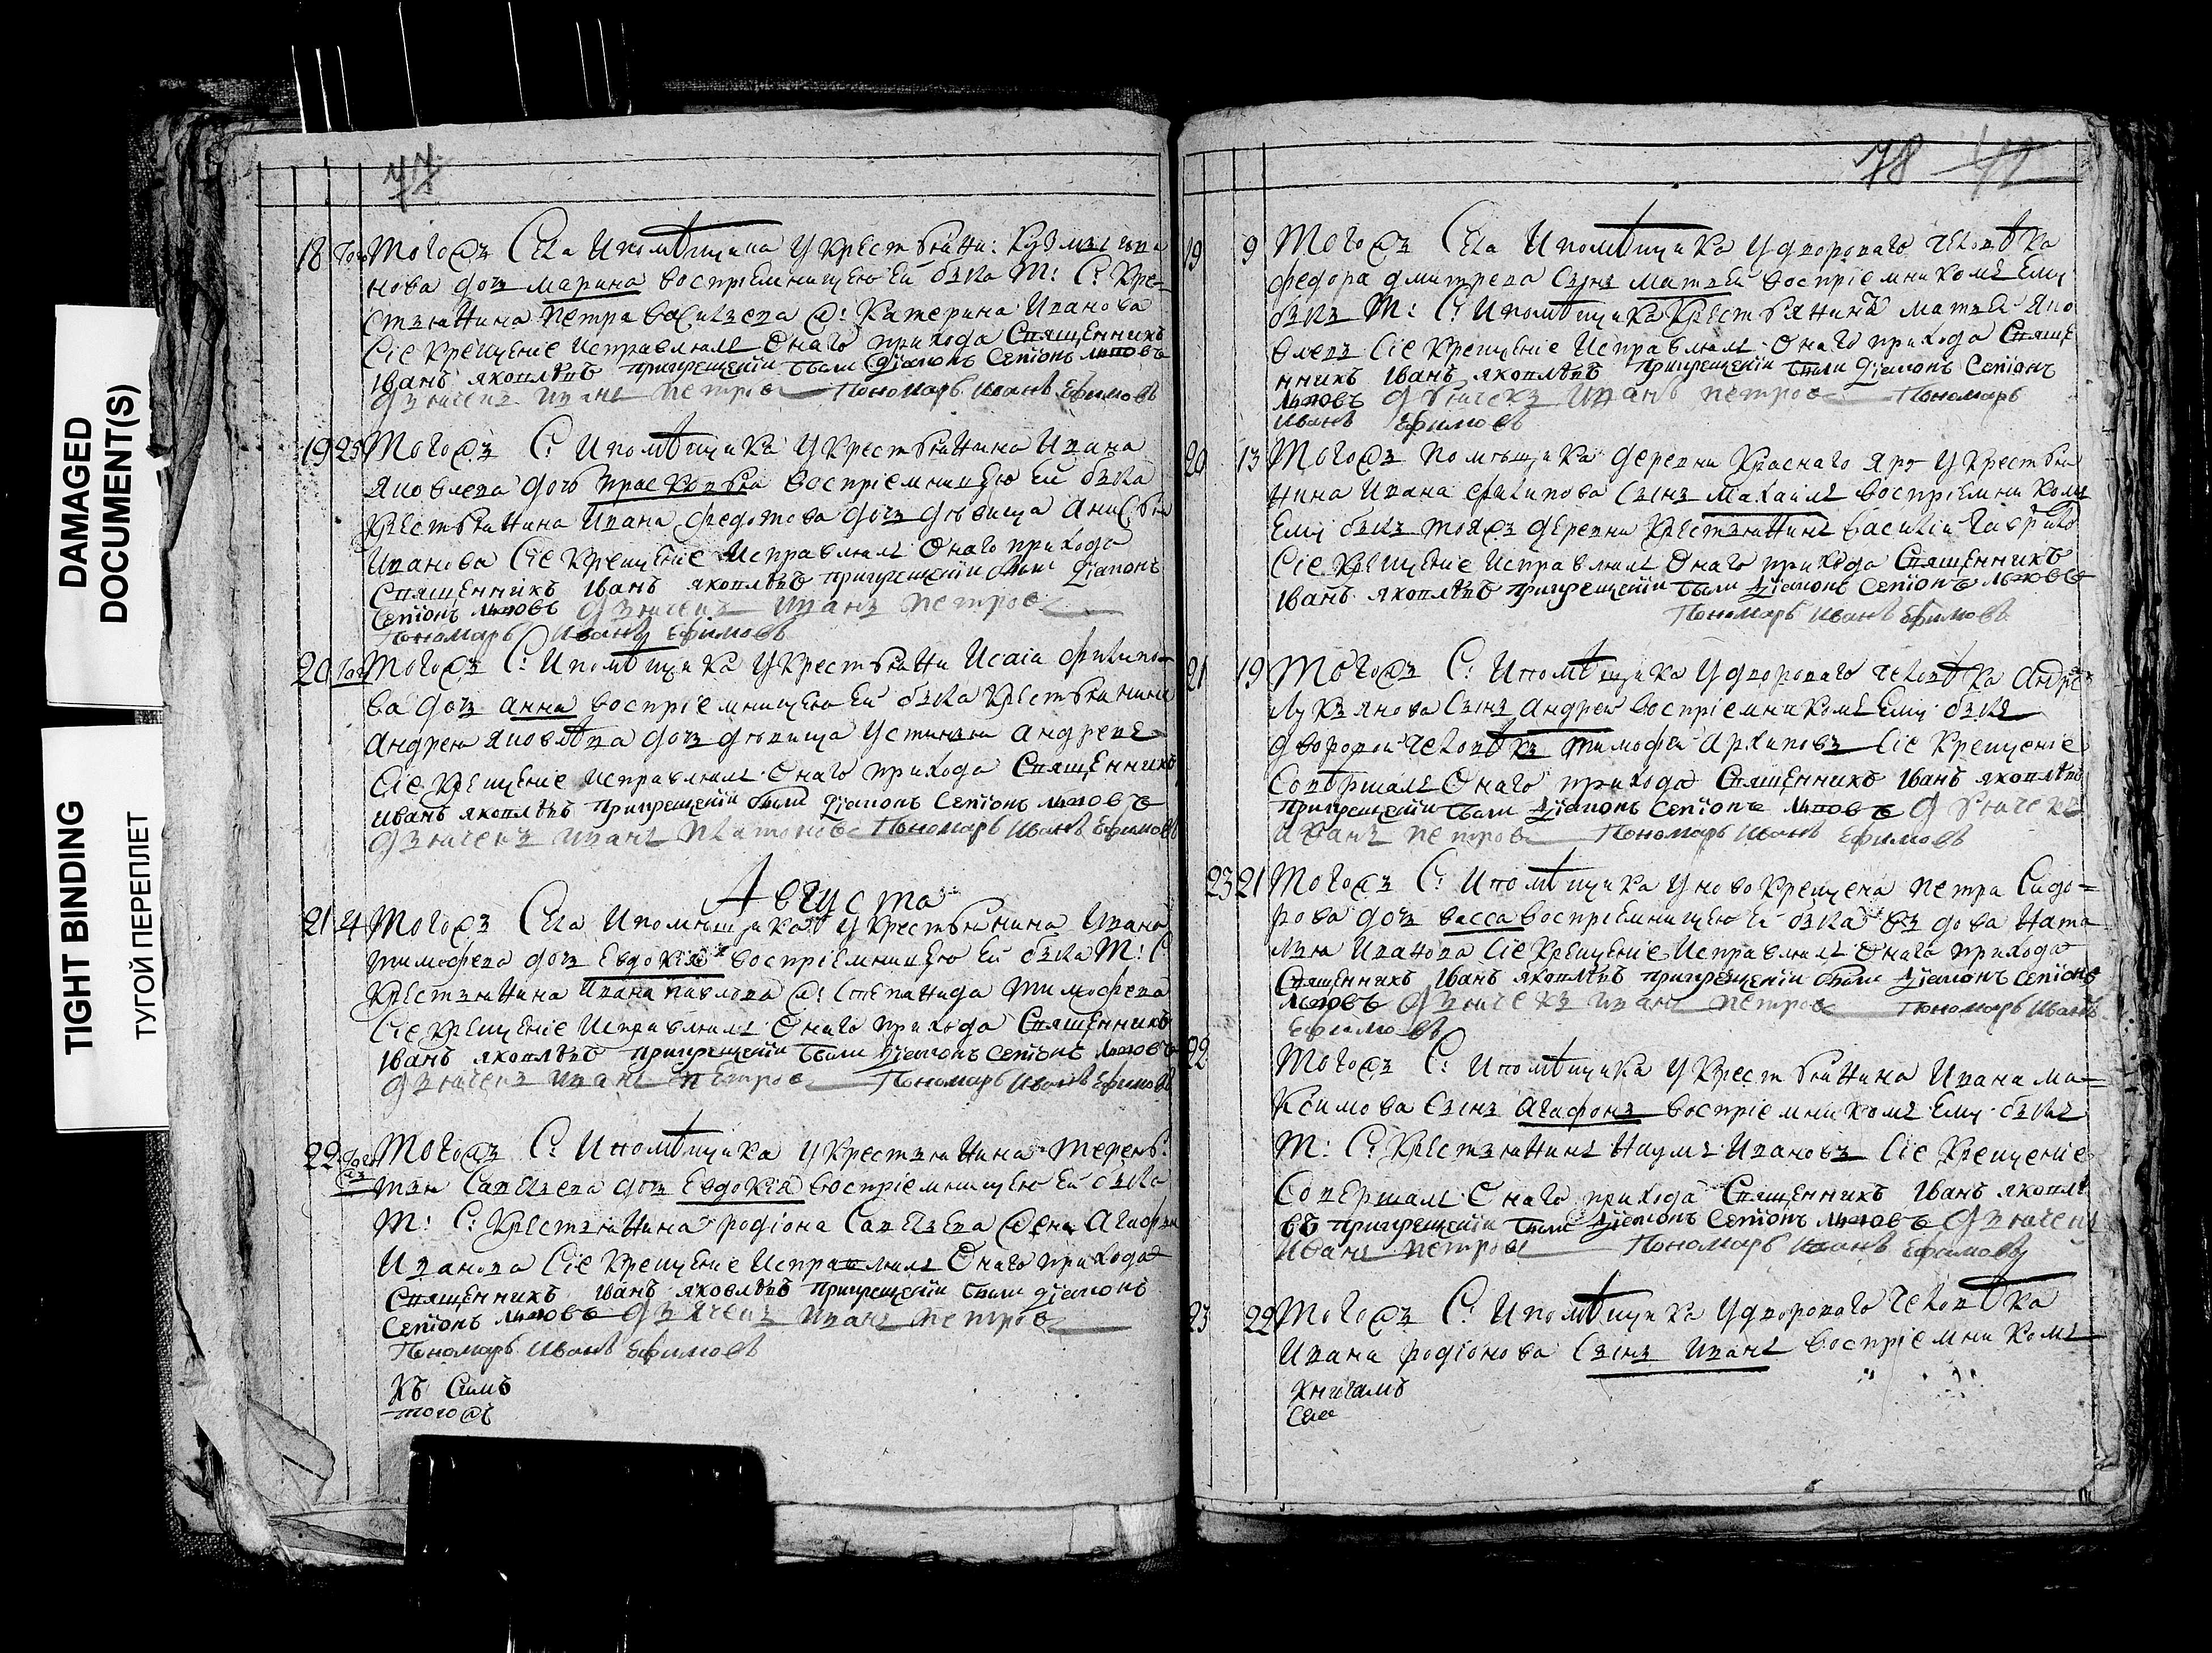 DAMAGED
DOCUMENT(S)
TIGHT BINDING
ТУГОЙ ПЕРЕПЛЕТ
77
18 Тогожъ Села и помѣщика у крестьяни: Кузмы
нова дочь Марина восприемницею ей была т: с: кре-
стьянина Петра Васильева ж: Катерина Иванова
Сіе крещеніе исправлялъ онаго прихода Священникъ
Іванъ яковлевъ при крещеніи были Діаконъ Семіонъ
Дьячекъ Иванъ Петровъ Пономарь Иванъ Ефимовъ
19 25 Тогожъ С: и помѣщика у крестьянина Ивана
Яковлева дочь Прасковья восприемницею ей была
крестьянина Ивана Федотова дочь девица Анисья
Иванова Сіе крещеніе исправлялъ онаго прихода
Священнікъ Іванъ яковлевъ при крещеніи были Діаконъ
Семіонъ Дьячекъ Иванъ Петровъ
Пономарь Иванъ Ефимовъ
20 Тогожъ С: и помѣщика у крестьяни Исаіи Филипо-
ва дочь Анна восприемницею ей была крестьянина
Андрея Яковлѣва дочь девица Устинья Андреве
Сіе крещеніе исправлялъ онаго прихода Священникъ
Иванъ яковлевъ при крещеніи были Діаконъ Семіонъ
Дьячекъ Иванъ Платоновъ Пономарь Иванъ Ефимовъ
Августа
21 4 Тогожъ Села и помѣщика у крестьянина Ивана
Тимофева дочь Евдокія восприемницею ей была т: с:
крестьянина Ивана Павлова ж: Степанида Тимофева
Сіе крещеніе исправлялъ онаго прихода Священникъ
Іванъ яковлевъ при крещеніи были Діаконъ Семіонъ
Дьячекъ Иванъ Петровъ Пономарь Иванъ Ефимовъ
22 Тогожъ Тогожъ С: и помѣщика у крестьянина Терень-
тья Савельева дочь Евдокія восприемницею ей была
т: с: крестьянина Родіона Савельева жена Агафья
Иванова Сіе крещеніе исправлялъ онаго прихода
Священникъ Іванъ яковлевъ при крещеніи были діаконъ
Семіонъ Дьячекъ Иванъ Петровъ
Пономарь Иванъ Ефимовъ
Къ Симъ
тогожъ
78 42
19 9 Тогожъ Села и помѣщика у двороваго человѣка
Федора Дмитрева сынъ Матвей восприемникомъ ему
былъ т: с: и помѣщика крестьянинъ Матвей Яко
влевъ Сіе крещеніе исправлялъ онаго прихода Свяще
нникъ Іванъ яковлевъ при крещеніи были Діаконъ Семіонъ
Дьячекъ Иванъ Петровъ Пономарь
Иванъ Ефимовъ
20 13 Тогожъ помѣщика деревни Краснаго Яру у крестья
нина Ивана Филипова сынъ Михаилъ восприемником
ему былъ тояжъ деревни крестьянинъ Василій Гаврило
Сіе крещеніе исправлялъ онаго прихода Священникъ
Іванъ яковлевъ при крещеніи были Діаконъ Семіонъ
Пономарь Иванъ Ефимовъ
21 19 Тогожъ С: и помѣщика у двороваго человѣка Андре
Лукьянова сынъ Андрей восприемникомъ ему былъ
дворовой человѣкъ Тимофей Архиповъ Сіе крещеніе
совершалъ онаго прихода Священникъ Іванъ яковлевъ
при крещеніи были Діаконъ Семіонъ Дьячекъ
Иванъ Петровъ Пономарь Иванъ Ефимовъ
23 21 Тогожъ С: и помѣщика у новокрещена Петра Сидо=
рова дочь Васса восприемницею ей была вдова Ната
лья Иванова Сіе крещеніе исправлялъ онаго прихода
Священникъ Іванъ яковлевъ при крещеніи были Діаконъ Семіонъ
Дьячекъ Иванъ Петровъ Пономарь Иванъ
Ефимовъ
22 Тогожъ С: и помѣщика у крестьянина Ивана Ма=
ксимова сынъ Агафонъ восприемникомъ ему былъ
т: с: крестьянинъ Наумъ Ивановъ Сіе крещеніе
совершалъ онаго прихода Священникъ Іванъ яковлѣ
въ при крещеніи были Діаконъ Семіонъ Дьячекъ
Иванъ Петровъ Пономарь Иванъ Ефимовъ
23 22 Тогожъ С: и помѣщика у двороваго человѣка
Ивана Родіонова сынъ Иванъ восприемникомъ
Книгамъ
Села